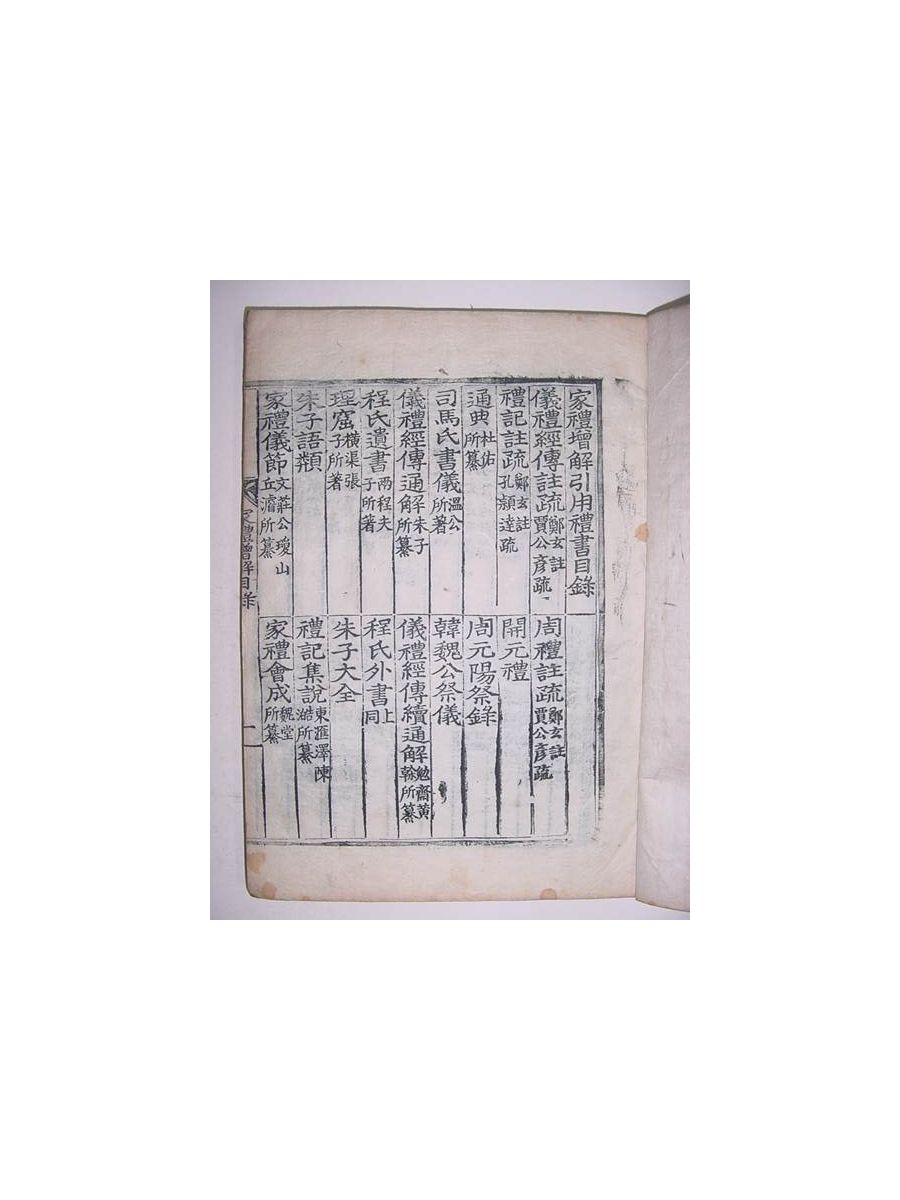 家禮增解引用禮書目錄
儀禮經傳註疏鄭玄註賈公彦疏 周禮註疏鄭玄註賈公彦疏
禮記註疏鄭玄註孔頴達疏 開元禮
通典杜佑所纂 周元陽祭錄
司馬氏書儀溫公所著 韓魏公祭儀
儀禮經傳通解朱子所纂 儀禮經傳續通解勉齋黃榦所纂
程氏遺書兩程夫子所著 程氏外書上同
理窟橫渠張子所著 朱子大全
朱子語類 禮記集說東匯澤陳澔所纂
家禮儀節文莊公瓊山丘濬所纂 家禮會成魏堂所纂
家禮增解目錄 一